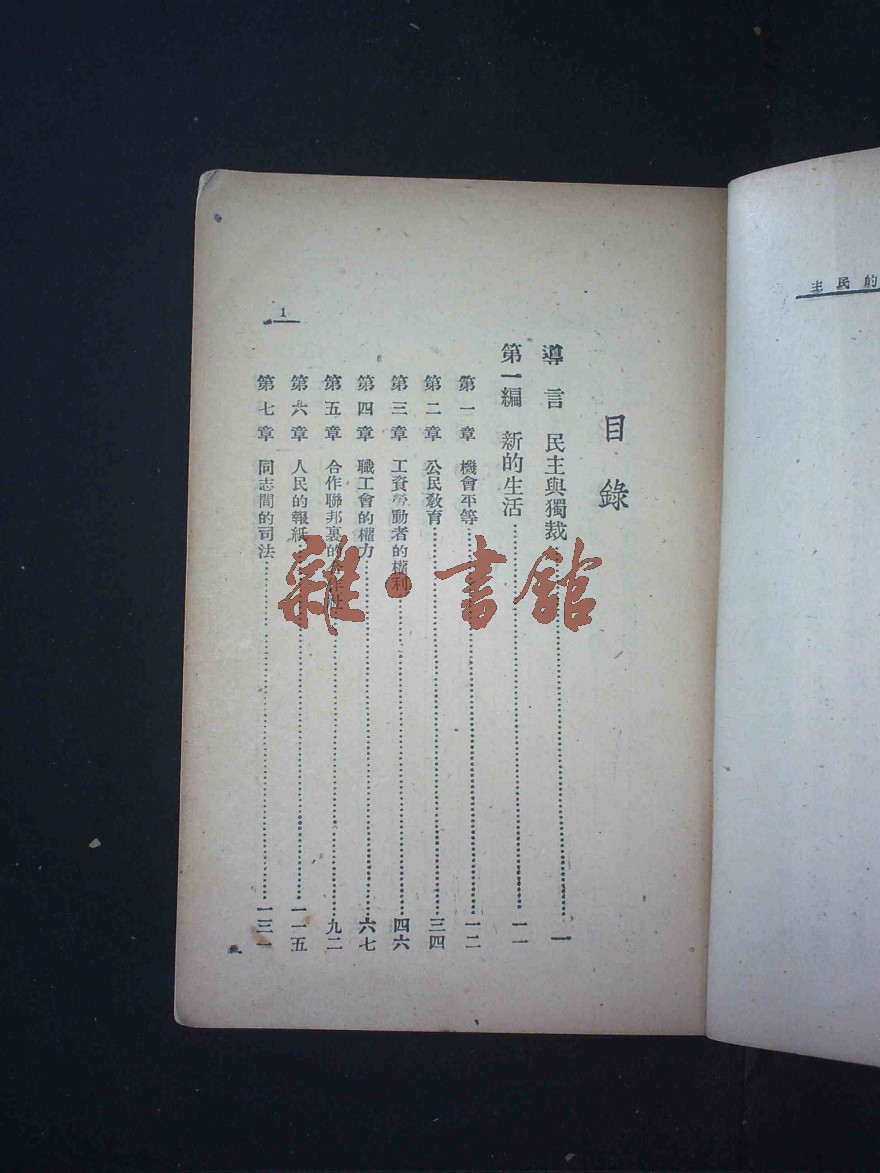 主民的
目錄
導言 民主與獨裁……一
第一編 新的生活……一一
第一章 機會平等……一二
第二章 公民教育……三四
第三章 工資勞動者的權利……四六
第四章 職工會的權力……六七
第五章 合作聯邦裏的合作社……九二
第六章 人民的報紙……一一五
第七章 同志間的司法……一三一
1
雜·書館